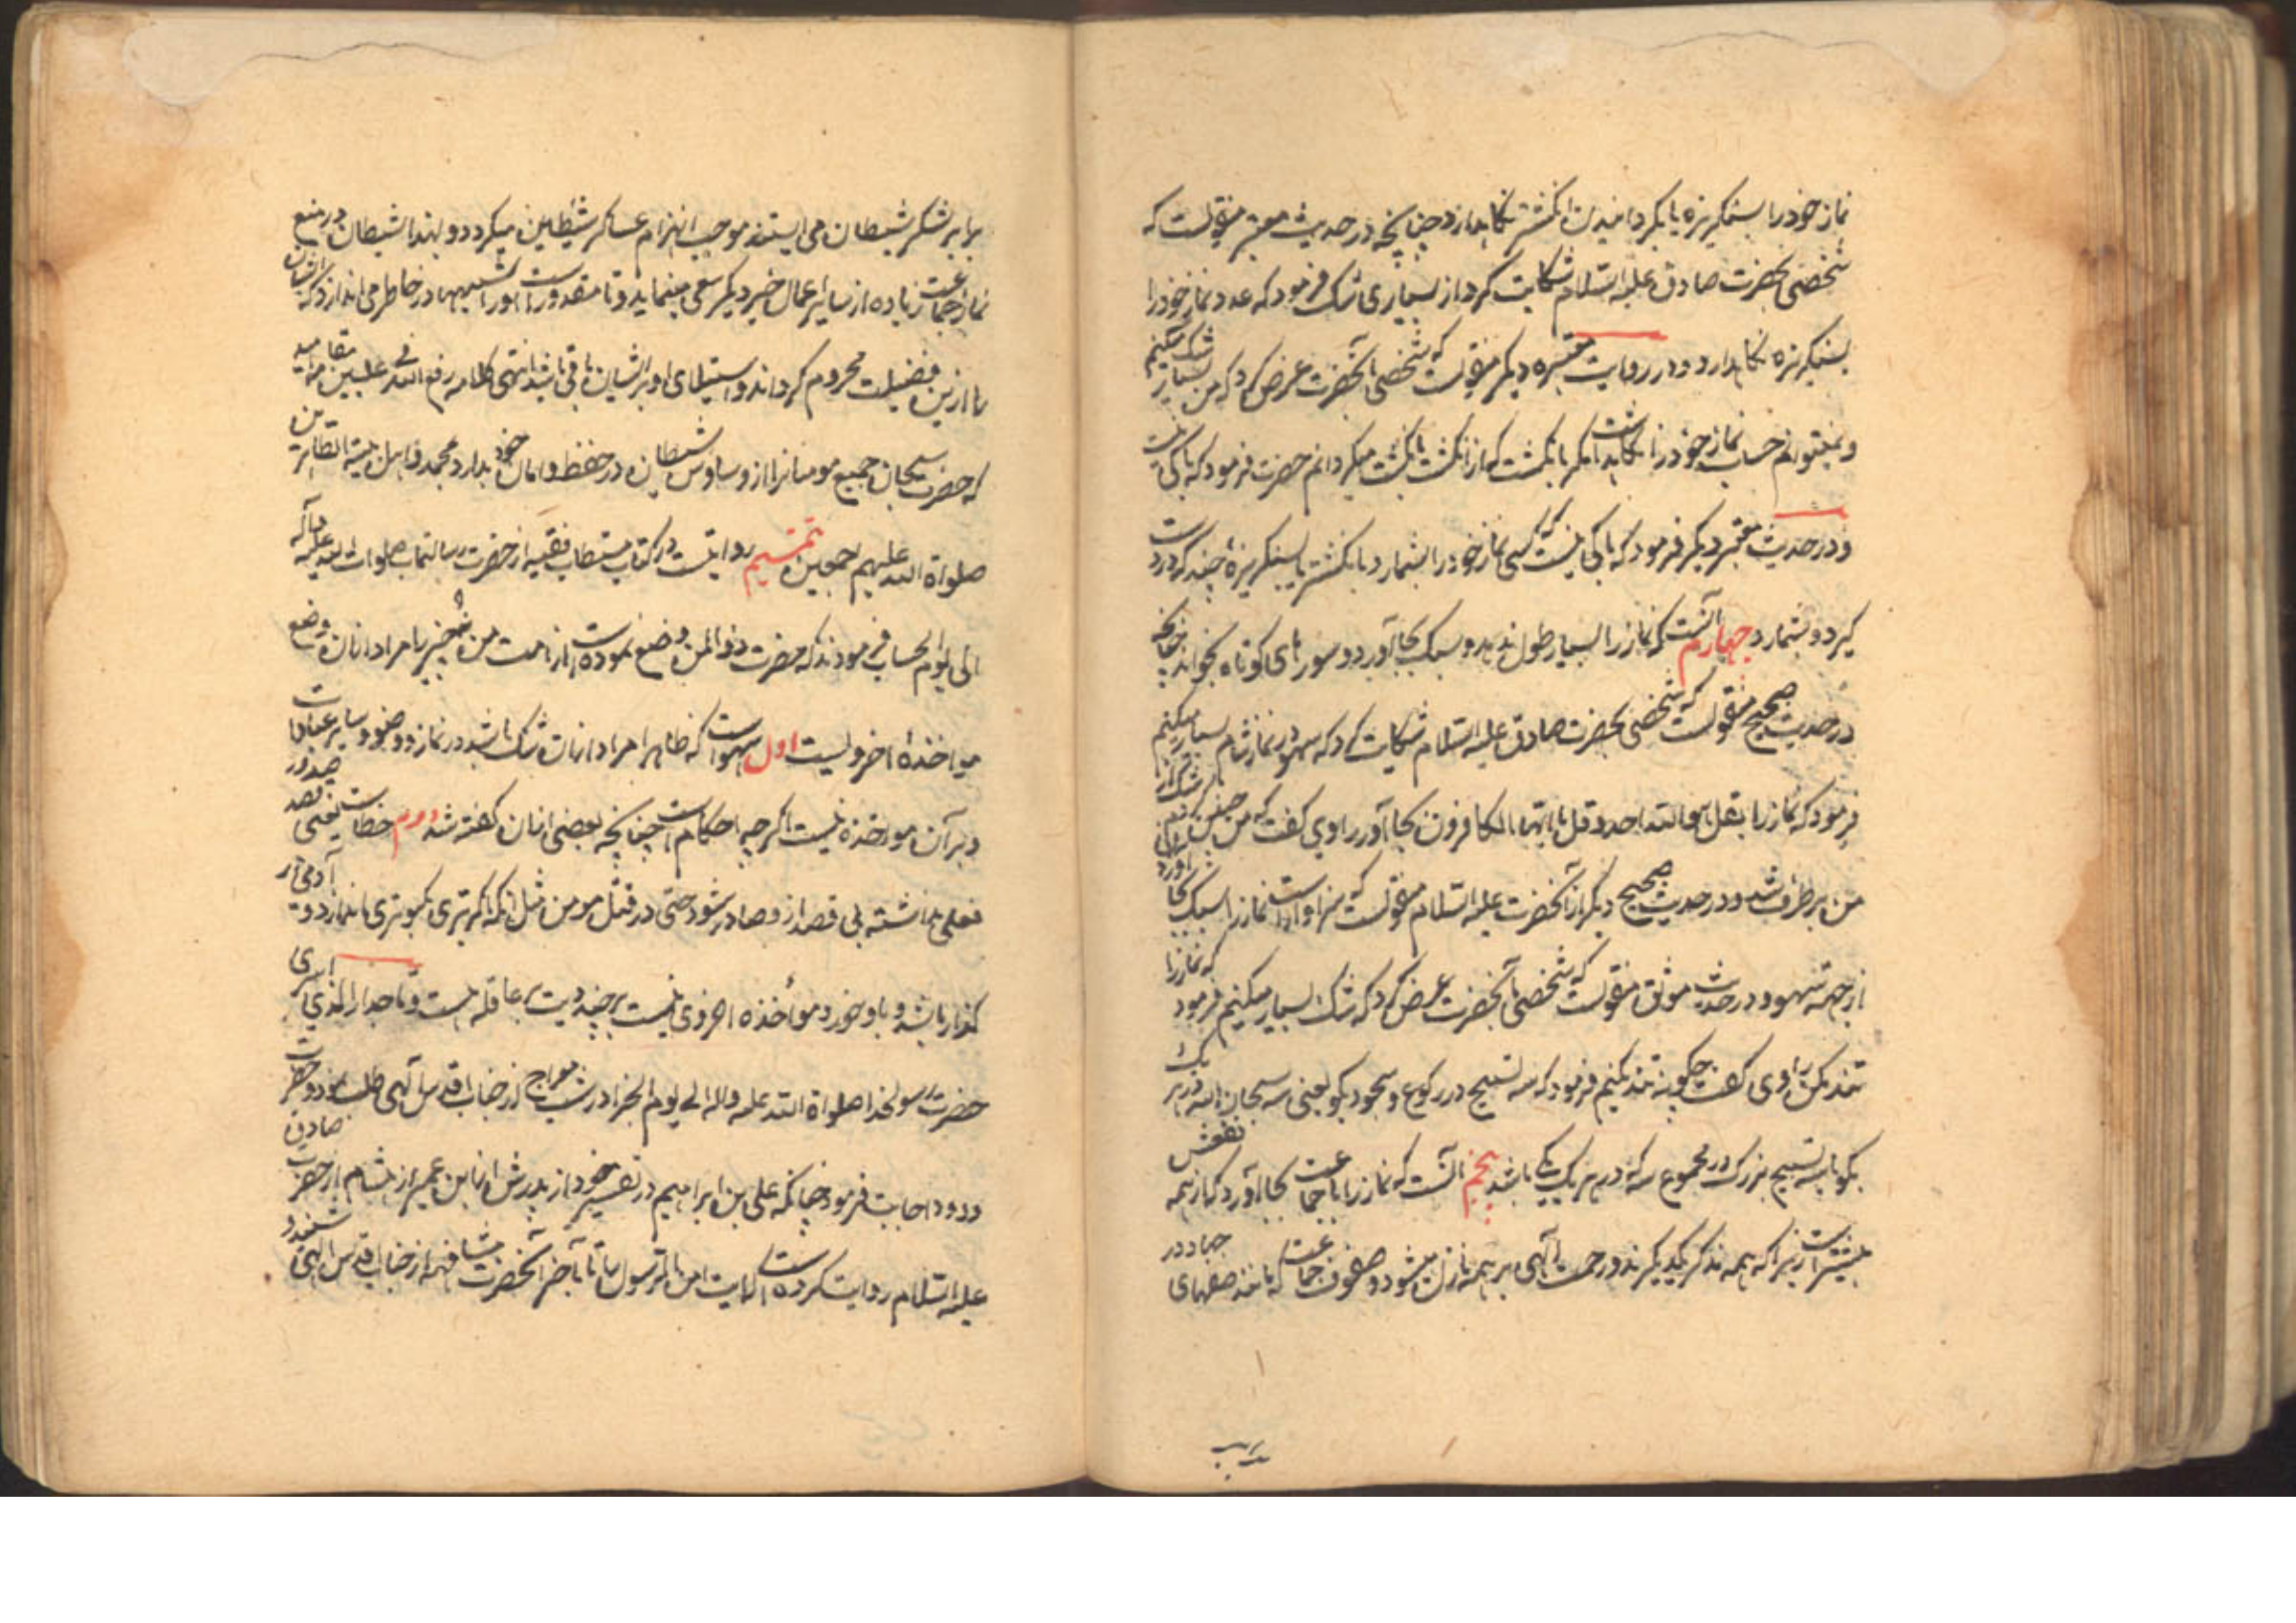 نماز خود را بسنکریزه یا بکردانیدن انکشتر نکاهدارد چنانچه در حدیث معتبر منقولست که
شخصی بحضرت صادق علیه السلام شکایت کرد از بسیاری شک فرمود که عدد نماز خود را
بسنکریزه نکاهدارد و در روایت معتبره دیکر منقولست که شخصی بآنحضرت عرض کرد که من بسیار شک میکنم
و نمیتوانم حساب نماز خود را نکاهداشت مکر بانکشت که از انکشت بانکشت میکردانم حضرت فرمود که باکی نیست
و در حدیث معتبر دیکر فرمود که باکی نیست که کسی نماز خود را بشمارد بانکشتر یا بسنکریزهٔ چند که در دست
کیرد و بشمارد چهارم آنست که نماز را بسیار طول ندهد و سبک بجا آورد و سورهای کوتاه بخواند چنانچه
در حدیث صحیح منقولست که شخصی بحضرت صادق علیه السلام شکایت کرد که سهو در نماز شام بسیار میکنم
فرمود که نماز را بقل هو الله احد و قل یا ایها الکافرون بجا آور راوی کفت که من چنین کردم شک از
من برطرف شد و در حدیث صحیح دیکر از آنحضرت علیه السلام منقولست که سزاوار است نماز را سبک بجا آورد
از جهة سهو و در حدیث موثق منقولست که شخصی بآنحضرت عرض کرد که شک بسیار میکنم فرمود که نماز را
تند بکن راوی کفت چکونه تند بکنم فرمود که سه تسبیح در رکوع و سجود بکو یعنی سه سبحان الله در هر یک
بکو یا سه تسبیح بزرک در مجموع که در هر یک یکی باشد پنجم آنست که نماز را با جماعت بجا آورد که از همه
بیشتر است زیرا که همه مذکر یکدیکرند و رحمت الهی بر همه نازل میشود و صفوف جماعت که مانند صفهای جهاد در
برابر لشکر شیطان می ایستند موجب انهزام عساکر شیاطین میکردد و لهذا شیطان در منع
نماز جماعت زیاده از سایر اعمال خیر دیکر سعی مینماید و تا مقدور اوست شبهها در خاطر می اندازد که ایشان
را ازین فضیلت محروم کرداند و استیلای او بر ایشان باقی باشد انتهی کلامه رفع الله فی علیین مقامه امید
که حضرت سبحان جمیع مومنانرا از وساوس شیطان در حفظ و امان خود بدارد بمحمد و اهل بیته الطاهرین
صلواة الله علیهم اجمعین تتمیم روایتست در کتاب مستطاب فقیه از حضرت رسالتماب صلوات الله علیه و آله
الی یوم الحساب فرمودند که حضرت ذو المن وضع نموده است از امت من نه چیز را مراد از آن وضع
مواخذهٔ اخرویست اول سهو است که ظاهرا مراد از آن شک باشد در نماز و وضو و سایر عبادات
و بر آن مواخذه نیست اکرچه احکام است چنانچه بعضی از آن کفته شد دوم خطاست یعنی قصد صدور
فعلی نداشته بی قصد از و صادر شود حتی در قتل مومن مثل آنکه تیری بکبوتری بیندازد و آدمی از
کذار باشد و باو خورد موأخذه اخروی نیست هر چند دیت بر عاقله هست و تاجدار الذی اسری
حضرت رسولخدا صلواة الله علیه و آله الی یوم الجزا در شب معراج از جناب اقدس الهی طلب نمود و حضرت
ودود اجابت فرمود چنانکه علی بن ابراهیم در تفسیر خود از پدرش از ابن عمیر از هشام از حضرت صادق
علیه السلام روایت کرده است که آیت امن الرسول را تا بآخر آنحضرت مشافهه از جناب اقدس الهی شنود